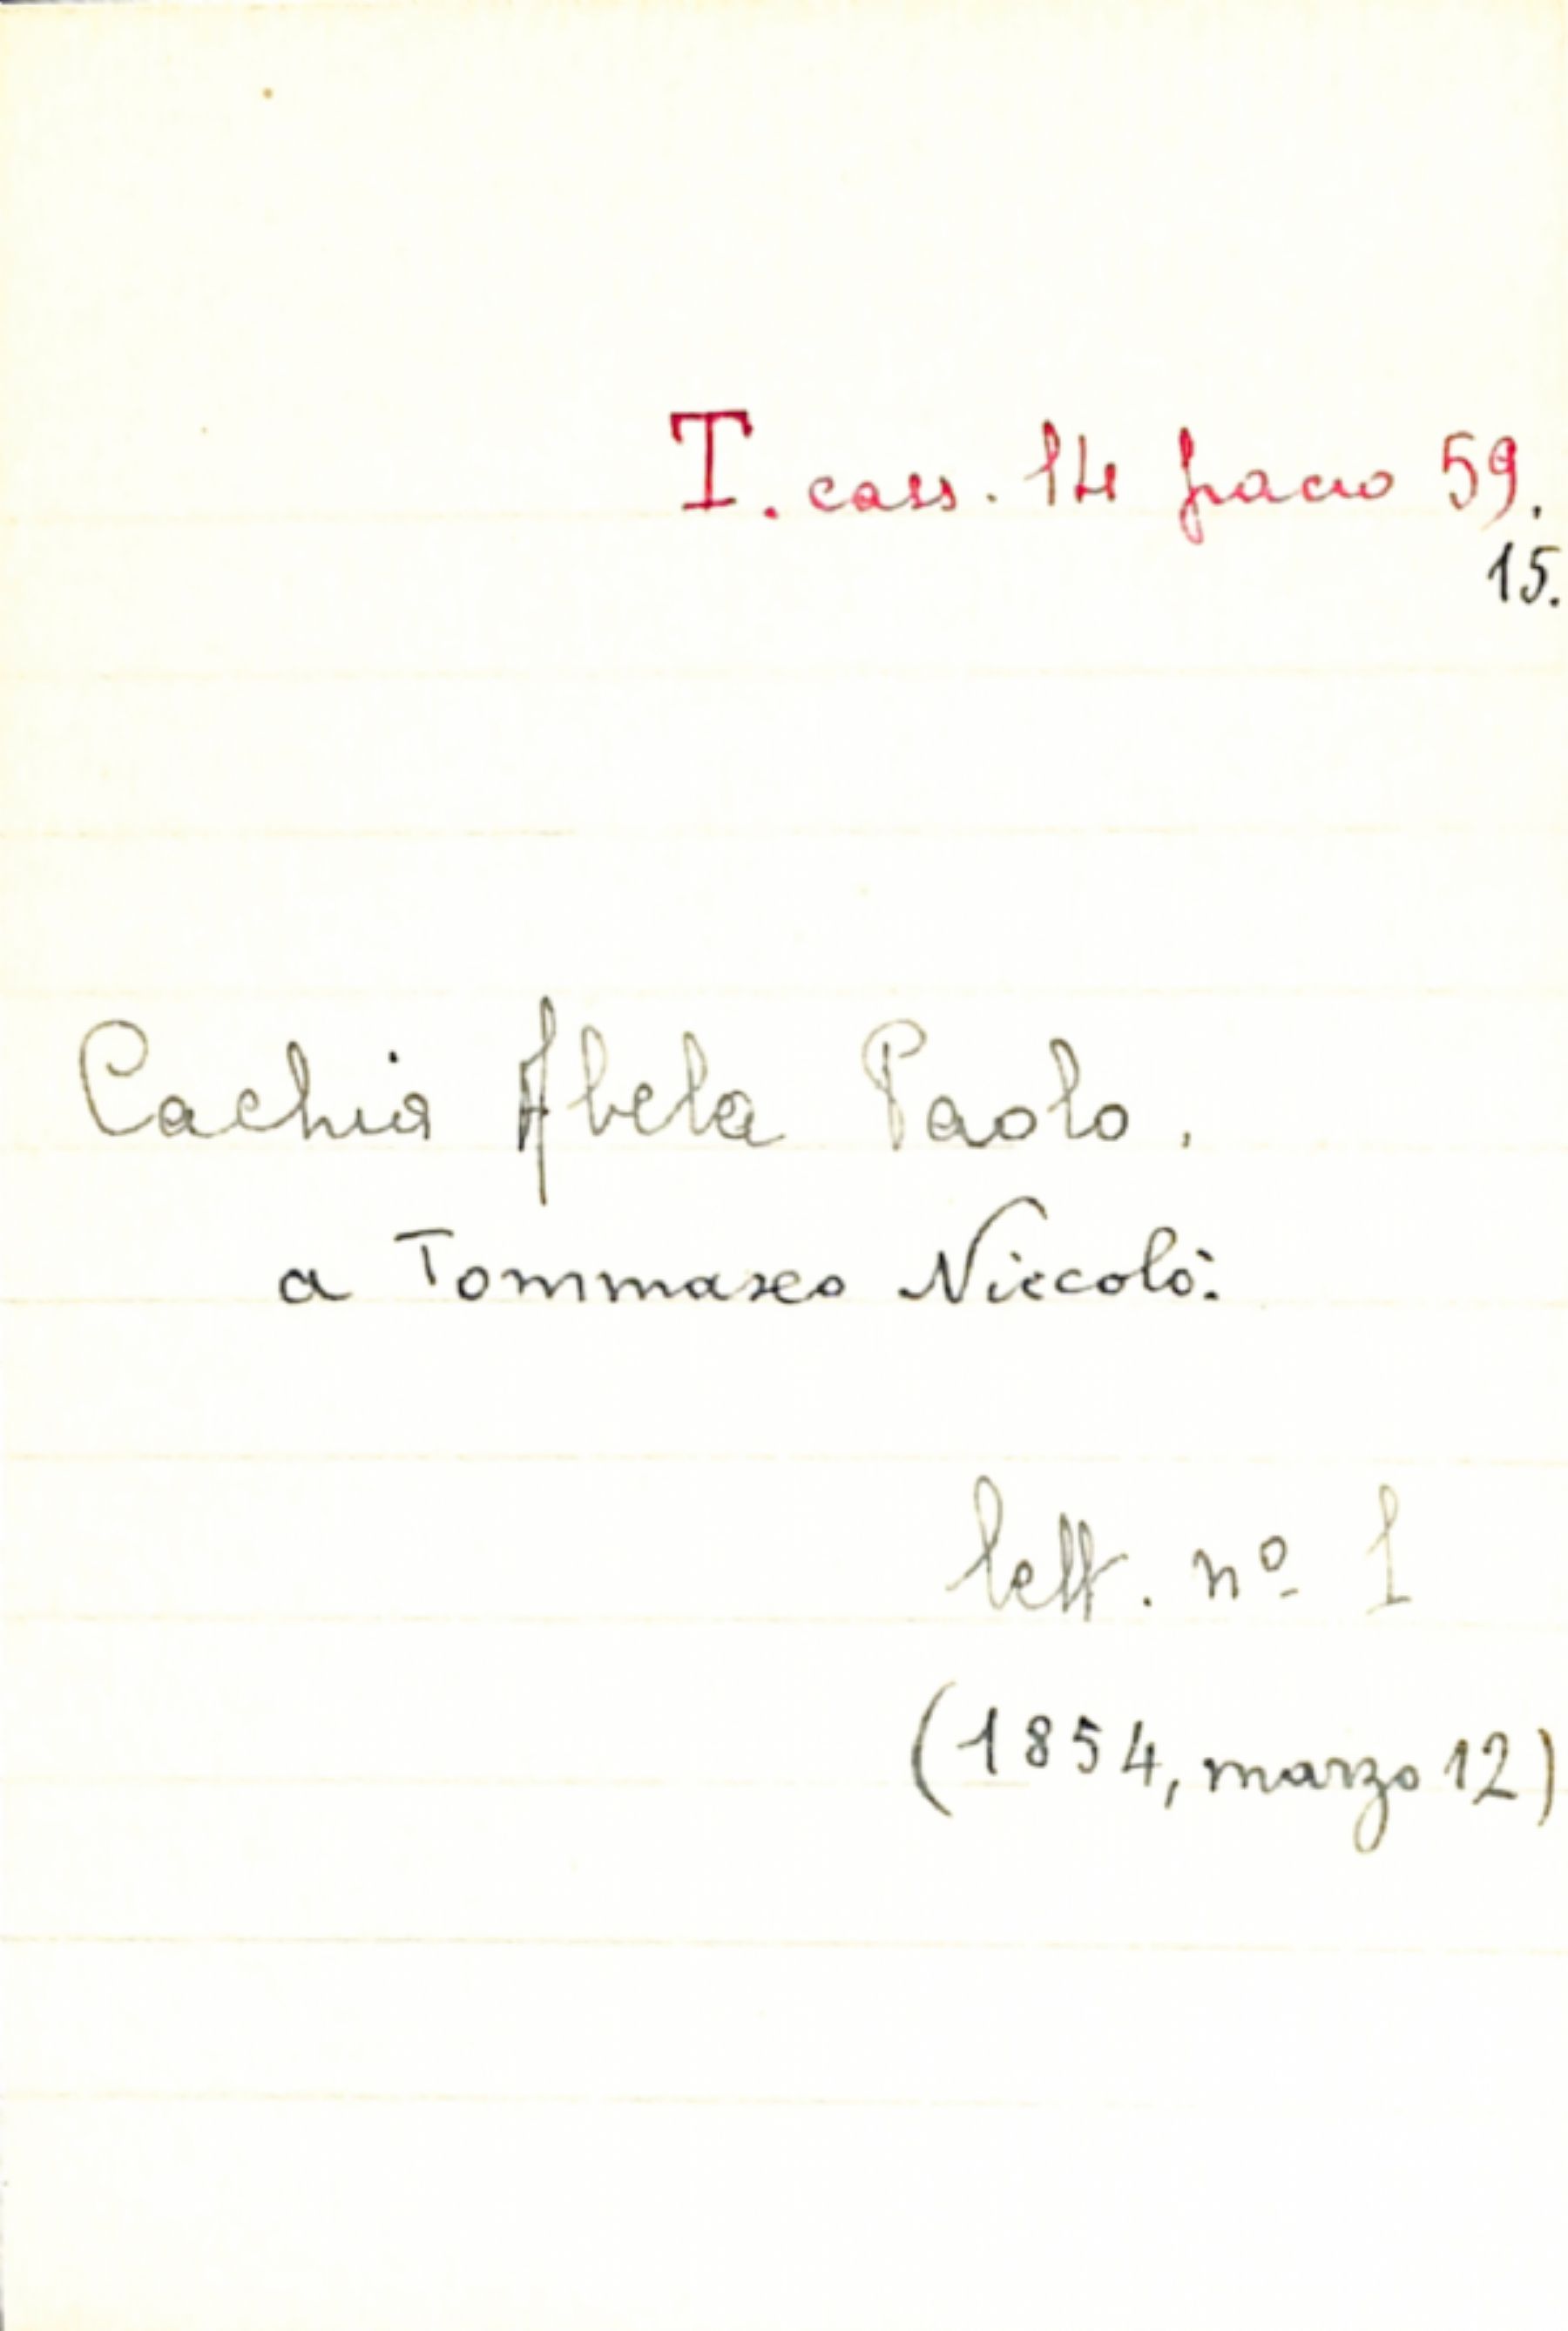 T. cass. 14 pacco 59.
15.
Cachia Abela Paolo.
a Tommaseo Niccolò.
lett. nº 1
(1854, marzo 12)